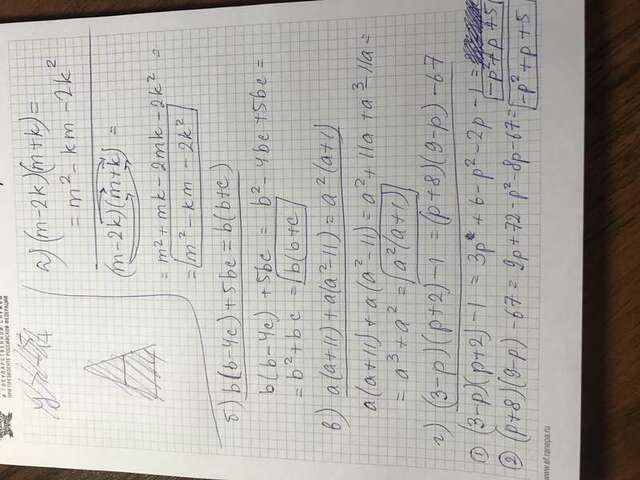 И ГОСУДАРСТВЕННОЙ СЛУЖБЫ
ПРИ ПРЕЗИДЕНТЕ РОССИЙСКОЙ ФЕДЕРАЦИИ
а) (m-2k)(m+k) =
= m² - km - 2k²
(m-2k)(m+k) =
= m² + mk - 2mk - 2k² =
= m² - km - 2k²
б) b(b-4c) + 5bc = b(b+c)
b(b-4c) + 5bc = b² - 4bc + 5bc =
= b² + bc = b(b+c
в) a(a+11) + a(a²-11) = a²(a+1)
a(a+11) + a(a²-11) = a² + 11a + a³ - 11a =
= a³ + a² = a²(a+1)
г) (3-p)(p+2) - 1 = (p+8)(9-p) - 67
① (3-p)(p+2) - 1 = 3p + 6 - p² - 2p - 1 =
-p² + p + 5
② (p+8)(9-p) - 67 = 9p + 72 - p² - 8p - 67 = -p² + p + 5
www.ef.ranepa.ru